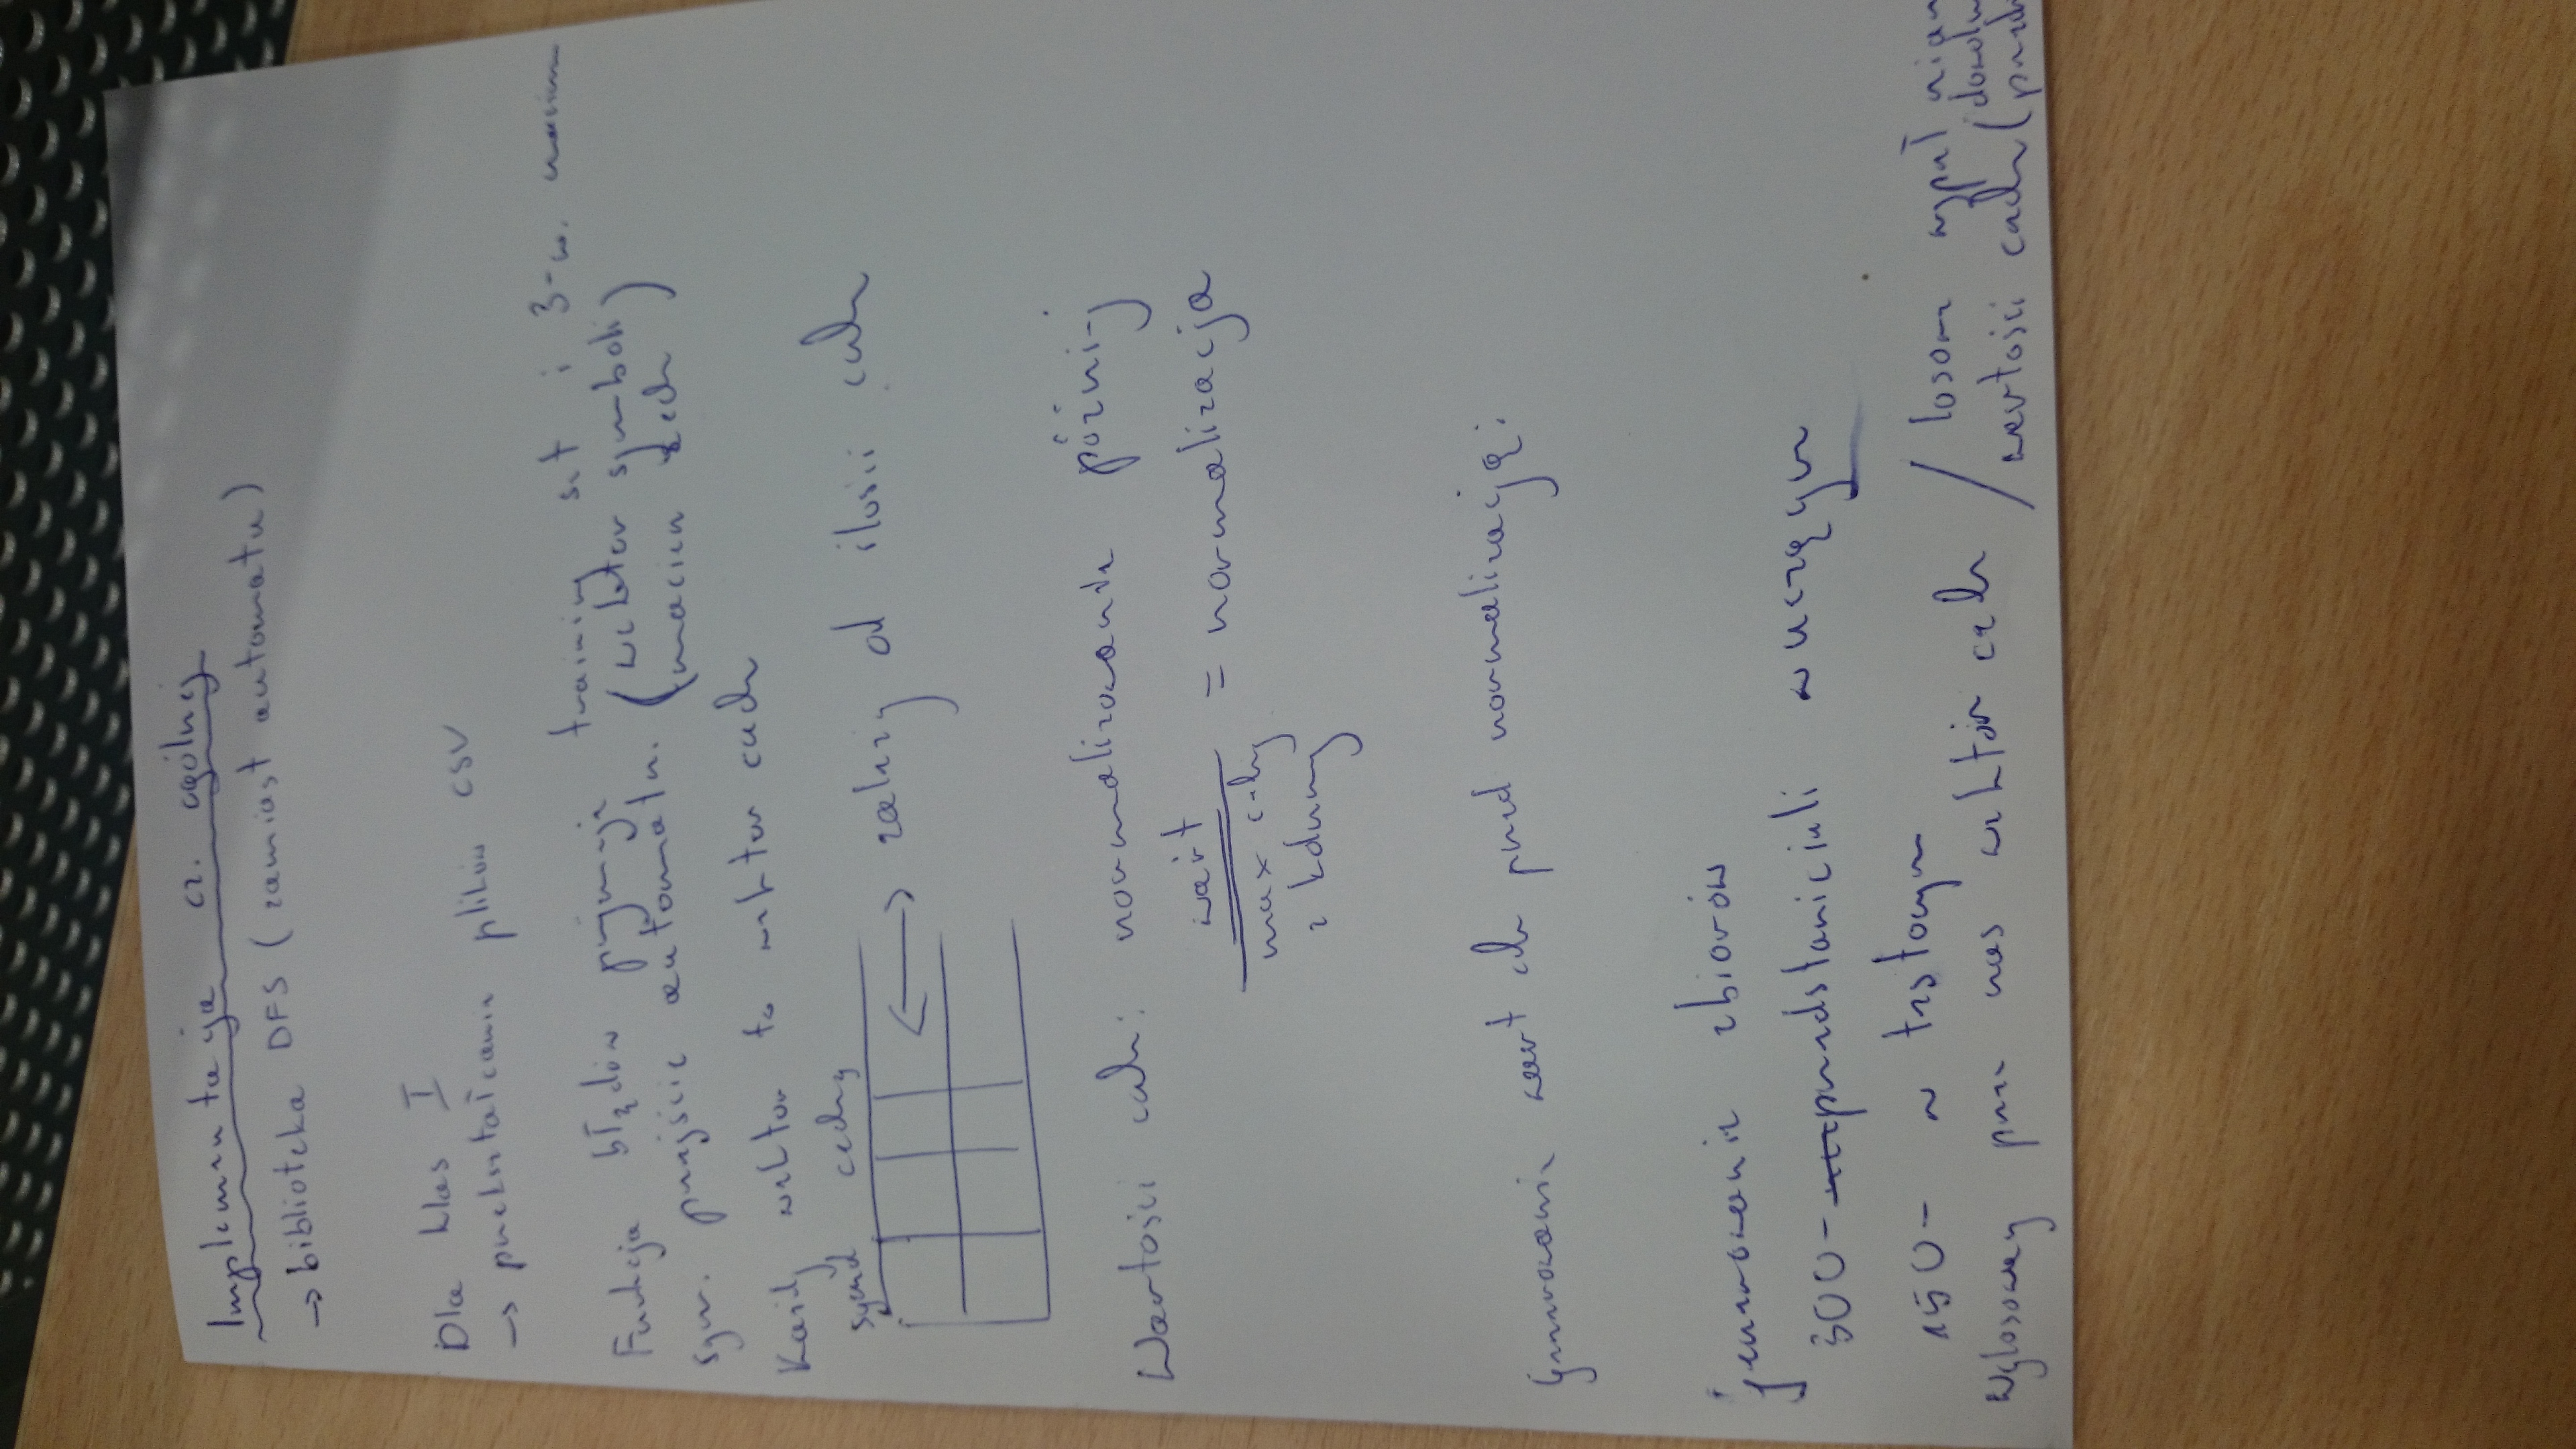 Implementacja cz. ogólnej
→ biblioteka DFS (zamiast automatu)
Dla klas I
→ przekształcanie plików CSV
Funkcja błędów przyjmuje training set i 3-w. macierz
sym. przejście automatu. (wektor symboli
macierz cech)
Każdy wektor to wektor cech
symbol cechy
←→ zależy od ilości cech
Wartości cech: normalizowanie później
wart
= normalizacja
max cechy
z kolumny
Generowanie wart cech przed normalizacją:
generowanie zbiorów
300- przedstawicieli w uczącym
150- w testowym
wylosowany przez nas wektor cech / losowe
wartości cech (